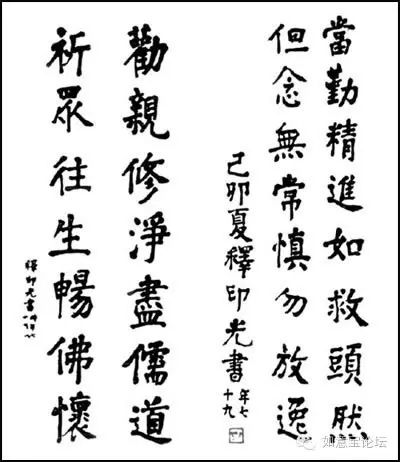 當勤精進如救頭然
但念無常慎勿放逸
己卯夏釋印光書
年七
十九
勸親修淨盡儒道
祈眾往生暢佛懷
釋印光書
如意宝论坛